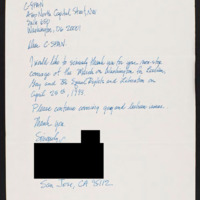 C-SPAN
400 North Capitol Street, NW
Suite 650
Washington, DC 20001
Dear C-SPAN
I would like to sincerely thank you for your non-stop
coverage of the March on Washington for Lesbian,
Gay and Bi Equal Rights and Liberation on
April 25th, 1993.
Please continue covering gay and lesbian issues.
Thank you.
Sincerely,
San Jose, CA 95112